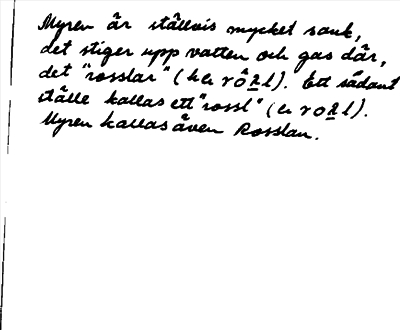 Myren är ställvis mycket sank,
det stiger upp vatten och gas där,
det "rosslar" ( rô l). Ett sådant
ställe kallas ett "rossl" ( ro l).
Myren kallas även Rosslan.